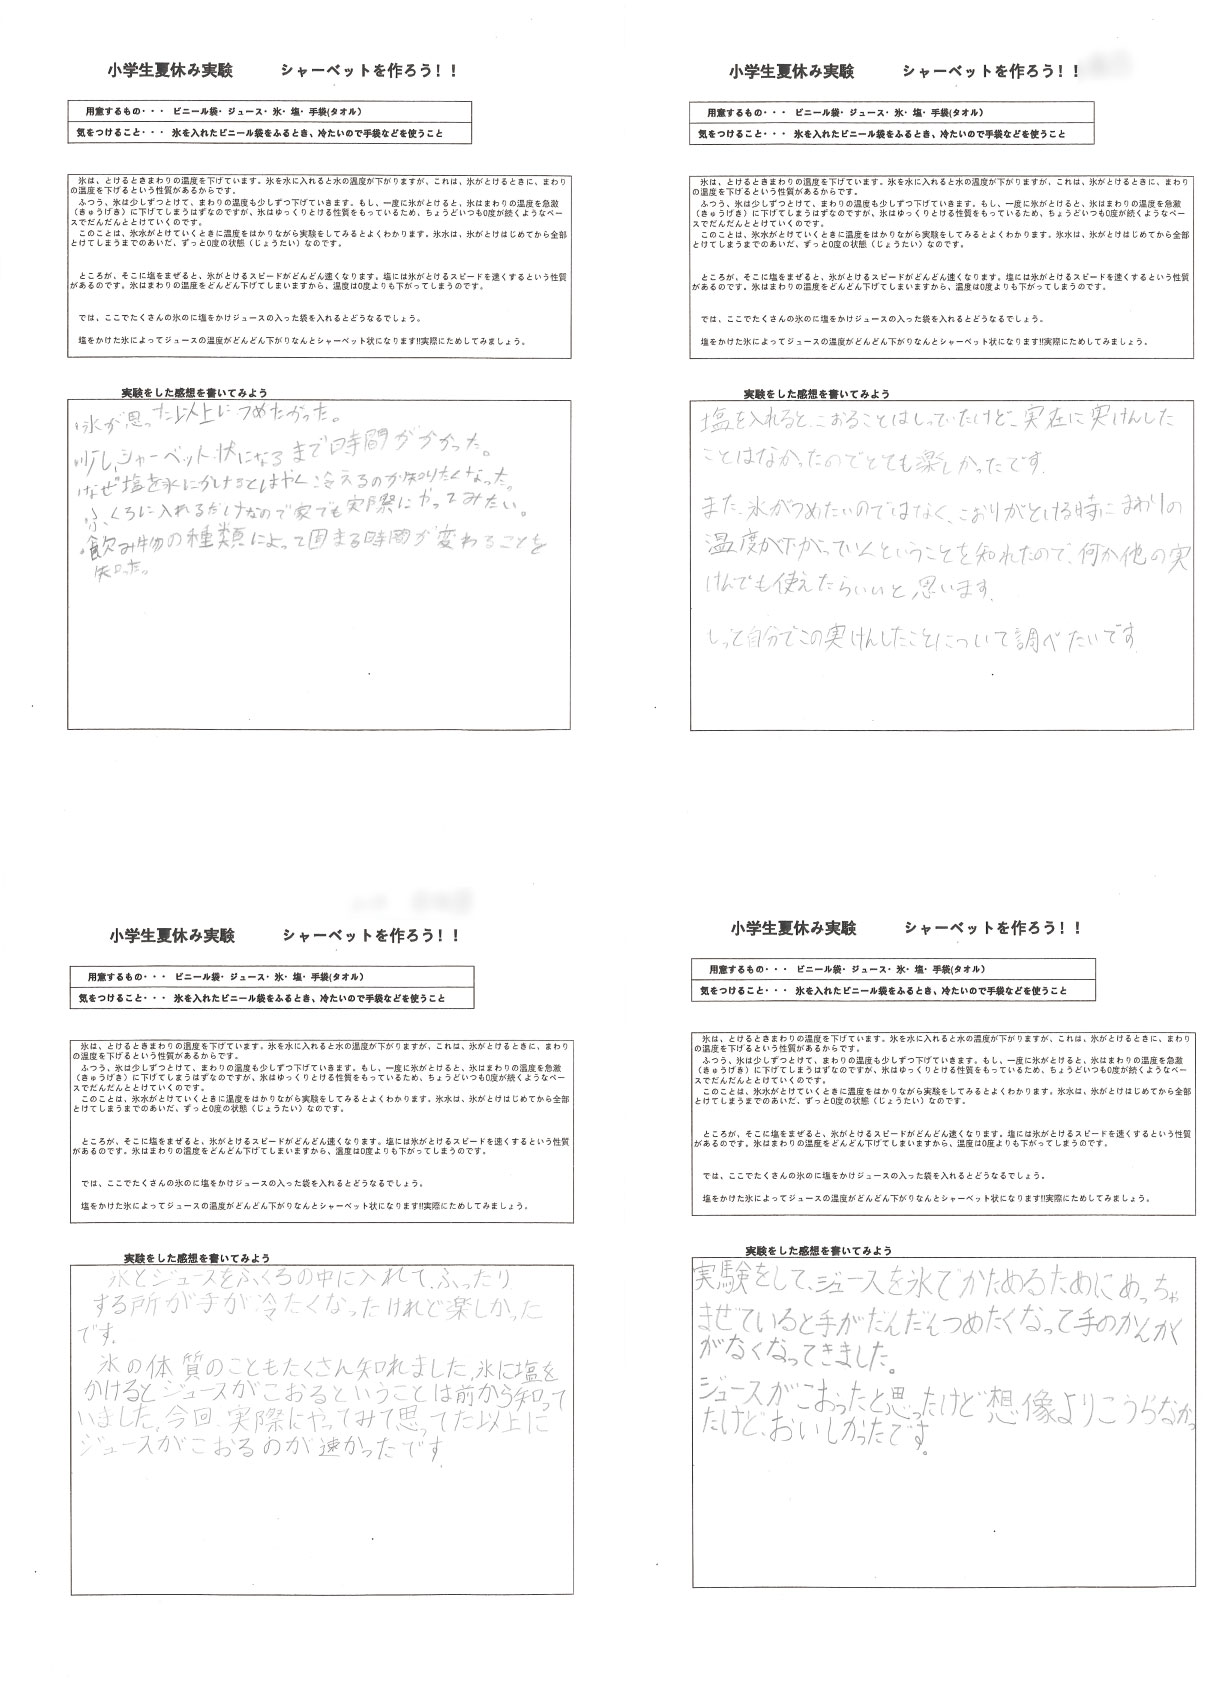 小学生夏休み実験　シャーベットを作ろう！！
用意するもの・・・　ビニール袋・ジュース・氷・塩・手袋(タオル)
気をつけること・・・　氷を入れたビニール袋をふるとき、冷たいので手袋などを使うこと
氷は、とけるときまわりの温度を下げています。氷を水に入れると水の温度が下がりますが、これは、氷がとけるときに、まわり
の温度を下げるという性質があるからです。
ふつう、氷は少しずつとけて、まわりの温度も少しずつ下げていきます。もし、一度に氷がとけると、氷はまわりの温度を急激
（きゅうげき）に下げてしまうはずなのですが、氷はゆっくりとける性質をもっているため、ちょうどいつも0度が続くようなペー
スでだんだんととけていくのです。
このことは、氷水がとけていくときに温度をはかりながら実験をしてみるとよくわかります。氷水は、氷がとけはじめてから全部
とけてしまうまでのあいだ、ずっと0度の状態（じょうたい）なのです。
ところが、そこに塩をまぜると、氷がとけるスピードがどんどん速くなります。塩には氷がとけるスピードを速くするという性質
があるのです。氷はまわりの温度をどんどん下げてしまいますから、温度は0度よりも下がってしまうのです。
では、ここでたくさんの氷のに塩をかけジュースの入った袋を入れるとどうなるでしょう。
塩をかけた氷によってジュースの温度がどんどん下がりなんとシャーベット状になります!!実際にためしてみましょう。
実験をした感想を書いてみよう
・氷が思った以上につめたかった。
・少し、シャーベット状になるまで時間がかかった。
・なぜ塩を氷にかけるとはやく冷えるのか知りたくなった。
・ふくろに入れるだけなので家でも実際にやってみたい。
・飲み物の種類によって固まる時間が変わることを
知った。
小学生夏休み実験　シャーベットを作ろう！！
用意するもの・・・　ビニール袋・ジュース・氷・塩・手袋(タオル)
気をつけること・・・　氷を入れたビニール袋をふるとき、冷たいので手袋などを使うこと
氷は、とけるときまわりの温度を下げています。氷を水に入れると水の温度が下がりますが、これは、氷がとけるときに、まわり
の温度を下げるという性質があるからです。
ふつう、氷は少しずつとけて、まわりの温度も少しずつ下げていきます。もし、一度に氷がとけると、氷はまわりの温度を急激
（きゅうげき）に下げてしまうはずなのですが、氷はゆっくりとける性質をもっているため、ちょうどいつも0度が続くようなペー
スでだんだんととけていくのです。
このことは、氷水がとけていくときに温度をはかりながら実験をしてみるとよくわかります。氷水は、氷がとけはじめてから全部
とけてしまうまでのあいだ、ずっと0度の状態（じょうたい）なのです。
ところが、そこに塩をまぜると、氷がとけるスピードがどんどん速くなります。塩には氷がとけるスピードを速くするという性質
があるのです。氷はまわりの温度をどんどん下げてしまいますから、温度は0度よりも下がってしまうのです。
では、ここでたくさんの氷のに塩をかけジュースの入った袋を入れるとどうなるでしょう。
塩をかけた氷によってジュースの温度がどんどん下がりなんとシャーベット状になります!!実際にためしてみましょう。
実験をした感想を書いてみよう
塩を入れると、こおることはしっていたけど、実在に実けんした
ことはなかったのでとても楽しかったです。
また、氷がつめたいのではなく、こおりがとける時にまわりの
温度が下がっていくということを知れたので、何か他の実
けんでも使えたらいいと思います。
もっと自分でこの実けんしたことについて調べたいです
小学生夏休み実験　シャーベットを作ろう！！
用意するもの・・・　ビニール袋・ジュース・氷・塩・手袋(タオル)
気をつけること・・・　氷を入れたビニール袋をふるとき、冷たいので手袋などを使うこと
氷は、とけるときまわりの温度を下げています。氷を水に入れると水の温度が下がりますが、これは、氷がとけるときに、まわり
の温度を下げるという性質があるからです。
ふつう、氷は少しずつとけて、まわりの温度も少しずつ下げていきます。もし、一度に氷がとけると、氷はまわりの温度を急激
（きゅうげき）に下げてしまうはずなのですが、氷はゆっくりとける性質をもっているため、ちょうどいつも0度が続くようなペー
スでだんだんととけていくのです。
このことは、氷水がとけていくときに温度をはかりながら実験をしてみるとよくわかります。氷水は、氷がとけはじめてから全部
とけてしまうまでのあいだ、ずっと0度の状態（じょうたい）なのです。
ところが、そこに塩をまぜると、氷がとけるスピードがどんどん速くなります。塩には氷がとけるスピードを速くするという性質
があるのです。氷はまわりの温度をどんどん下げてしまいますから、温度は0度よりも下がってしまうのです。
では、ここでたくさんの氷のに塩をかけジュースの入った袋を入れるとどうなるでしょう。
塩をかけた氷によってジュースの温度がどんどん下がりなんとシャーベット状になります!!実際にためしてみましょう。
実験をした感想を書いてみよう
氷とジュースをふくろの中に入れて、ふったり
する所が手が冷たくなったけれど楽しかった
です。
氷の体質のこともたくさん知れました。氷に塩を
かけるとジュースがこおるということは前から知って
いました。今回、実際にやってみて思ってた以上に
ジュースがこおるのが速かったです。
小学生夏休み実験　シャーベットを作ろう！！
用意するもの・・・　ビニール袋・ジュース・氷・塩・手袋(タオル)
気をつけること・・・　氷を入れたビニール袋をふるとき、冷たいので手袋などを使うこと
氷は、とけるときまわりの温度を下げています。氷を水に入れると水の温度が下がりますが、これは、氷がとけるときに、まわり
の温度を下げるという性質があるからです。
ふつう、氷は少しずつとけて、まわりの温度も少しずつ下げていきます。もし、一度に氷がとけると、氷はまわりの温度を急激
（きゅうげき）に下げてしまうはずなのですが、氷はゆっくりとける性質をもっているため、ちょうどいつも0度が続くようなペー
スでだんだんととけていくのです。
このことは、氷水がとけていくときに温度をはかりながら実験をしてみるとよくわかります。氷水は、氷がとけはじめてから全部
とけてしまうまでのあいだ、ずっと0度の状態（じょうたい）なのです。
ところが、そこに塩をまぜると、氷がとけるスピードがどんどん速くなります。塩には氷がとけるスピードを速くするという性質
があるのです。氷はまわりの温度をどんどん下げてしまいますから、温度は0度よりも下がってしまうのです。
では、ここでたくさんの氷のに塩をかけジュースの入った袋を入れるとどうなるでしょう。
塩をかけた氷によってジュースの温度がどんどん下がりなんとシャーベット状になります!!実際にためしてみましょう。
実験をした感想を書いてみよう
実験をして、ジュースを氷でかためるためにめっちゃ
ませていると手がだんだんつめたくなって手のかんかく
がなくなってきました。
ジュースがこおったと思ったけど想像よりこうらなかっ
たけど、おいしかったです。